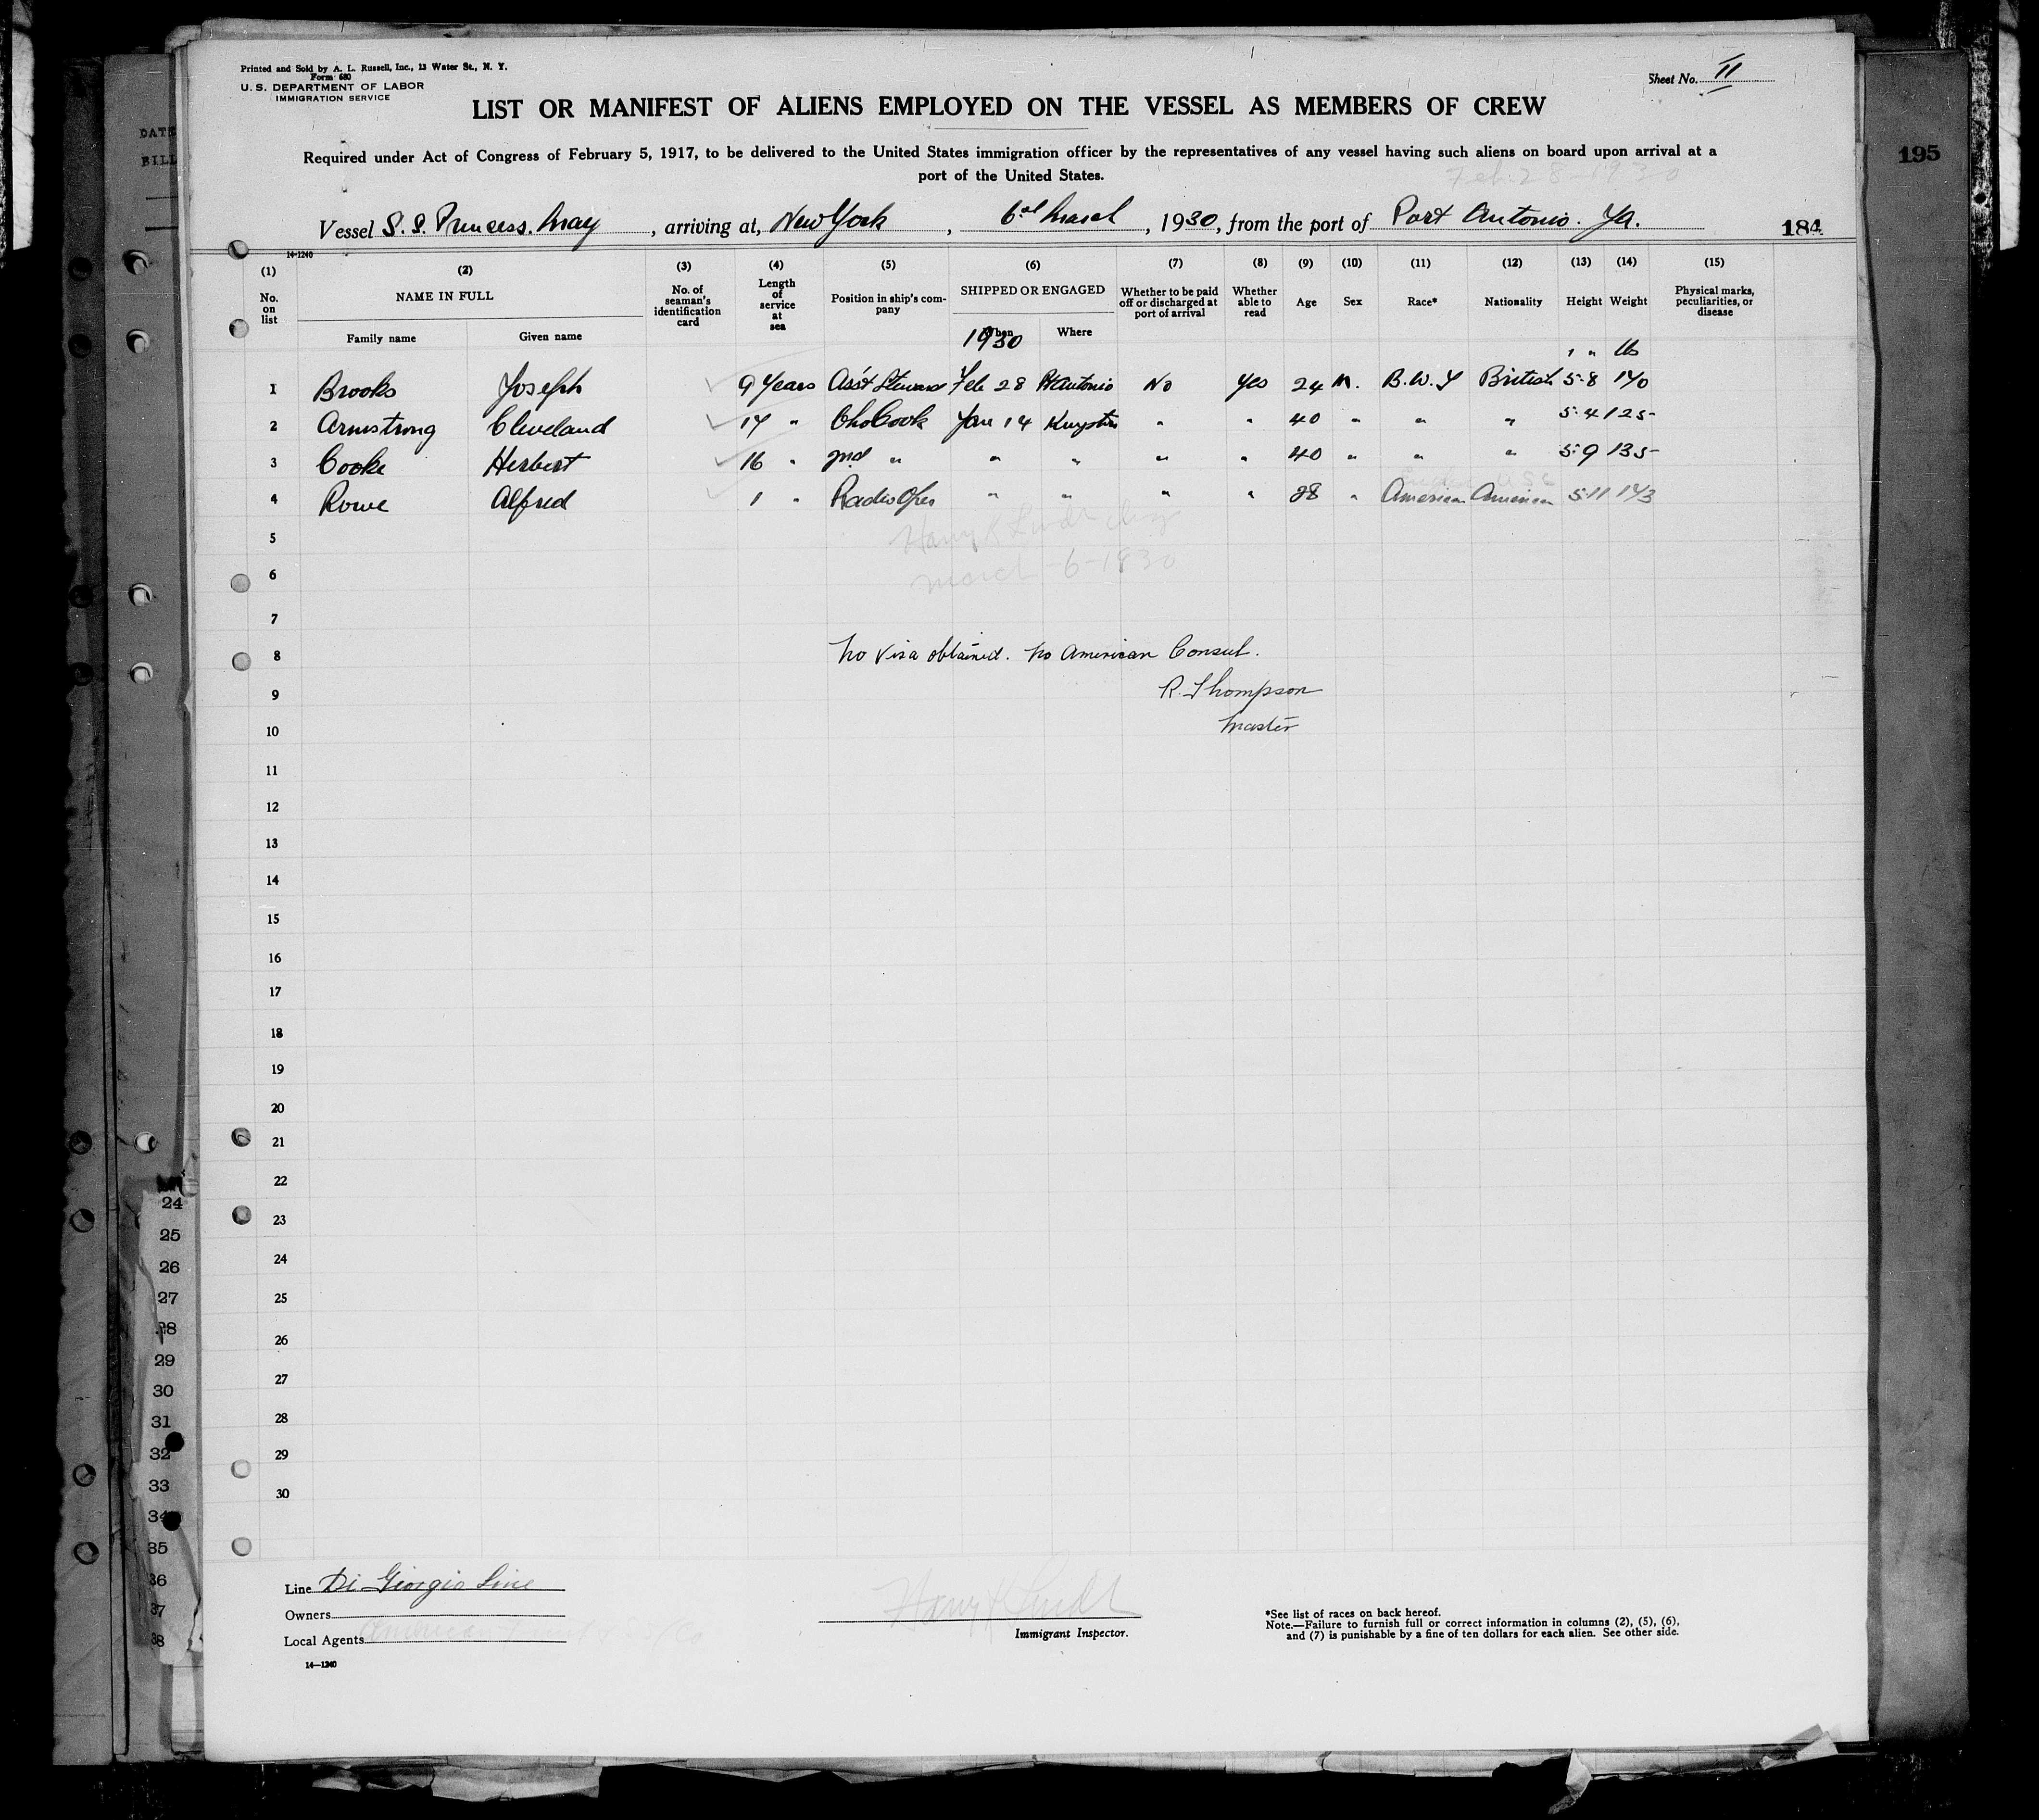 Printed and Sold by A. L. Russell, Inc., 13 Water St., N. Y.
Form 680
U. S. DEPARTMENT OF LABOR
IMMIGRATION SERVICE
Sheet No. II
LIST OR MANIFEST OF ALIENS EMPLOYED ON THE VESSEL AS MEMBERS OF CREW
Required under Act of Congress of February 5, 1917, to be delivered to the United States immigration officer by the representatives of any vessel having such aliens on board upon arrival at a
port of the United States.
Feb. 28-1930
Vessel S. S. Princess. May, arriving at, New York, 6th March, 1930, from the port of Port Antonio. Ja.
184
195
14-1240
(1) (2) (3) (4) (5) (6) (7) (8) (9) (10) (11) (12) (13) (14) (15)
No. on list NAME IN FULL No. of seaman's identification card Length of service at sea Position in ship's company SHIPPED OR ENGAGED Whether to be paid off or discharged at port of arrival Whether able to read Age Sex Race* Nationality Height Weight Physical marks, peculiarities, or disease
Family name Given name When Where
1930
' " lbs
1 Brooks Joseph 9 Years Ass't Steward Feb 28 Pt Antonio No Yes 24 M. B.W.I British 5-8 140
2 Armstrong Cleveland 14 " Ch Cook Jan 14 Kingston " " 40 " " " 5-4 125-
3 Cooke Herbert 16 " 2nd " " " " " 40 " " " 5-9 135-
4 Rowe Alfred 1 " Radio Oper " " " " 28 " American American 5-11 143
5
6 March-6-1930
7
8 No visa obtained. No American Consul.
9 R. Thompson
10 Master
11
12
13
14
15
16
17
18
19
20
21
22
23
24
25
26
27
28
29
30
24
25
26
27
28
29
30
31
32
33
34
35
36
37
38
Line Di Giorgio Line
Owners
Local Agents
14—1240
Immigrant Inspector.
*See list of races on back hereof.
Note.—Failure to furnish full or correct information in columns (2), (5), (6),
and (7) is punishable by a fine of ten dollars for each alien. See other side.